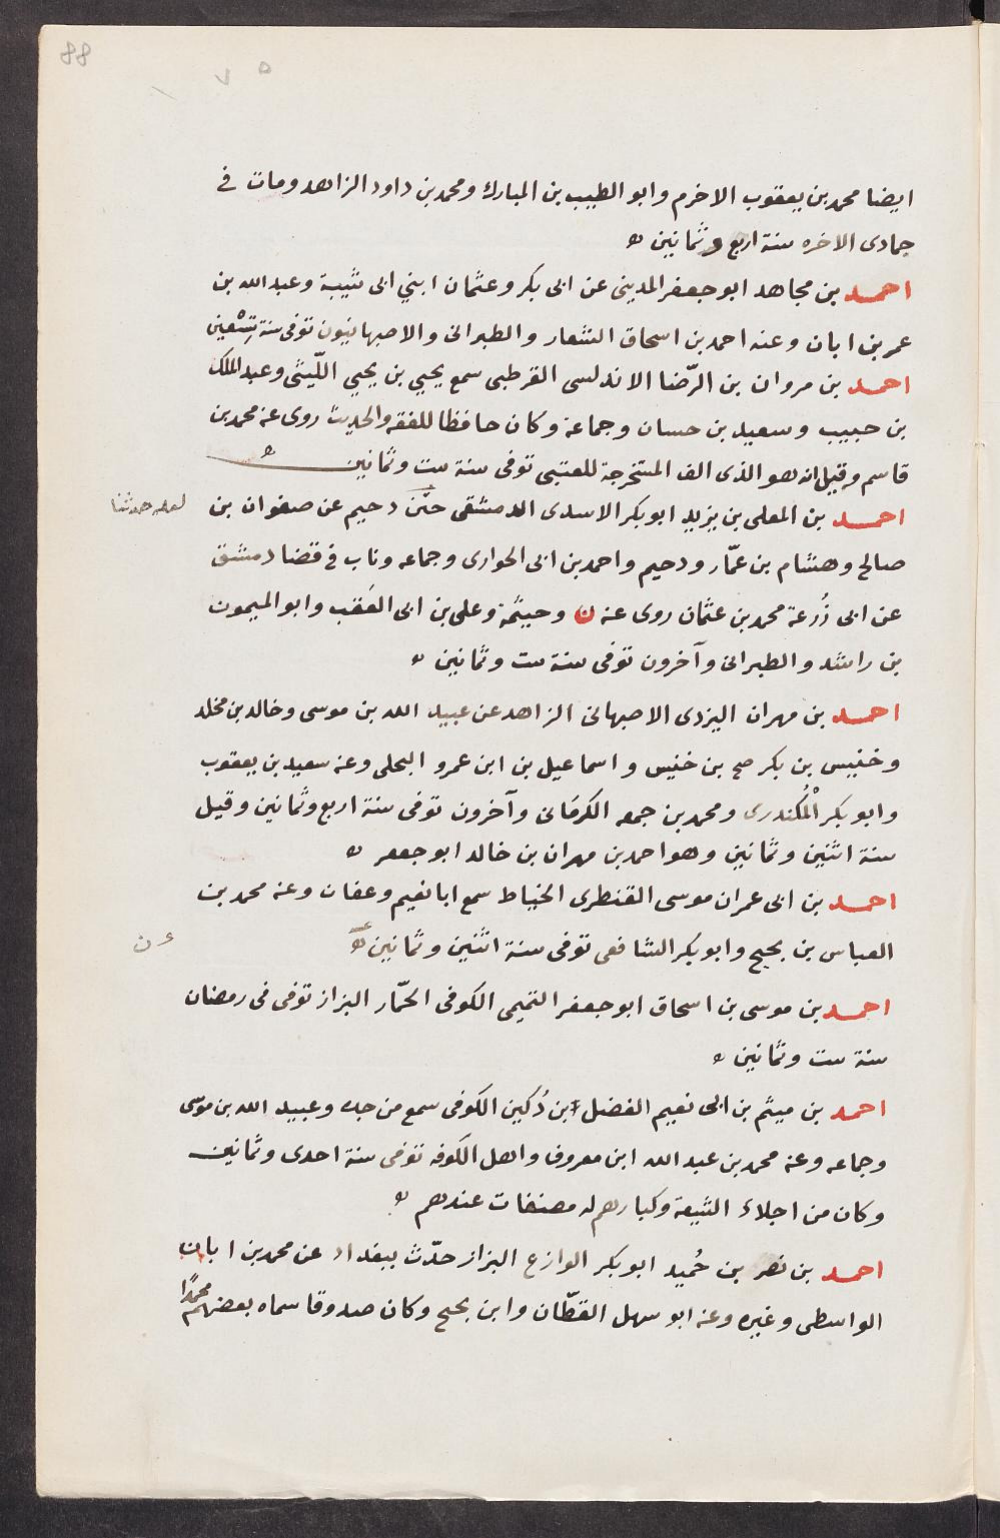 88
ايضا محمد بن يعقوب الاخرم وابو الطيب بن المبارك ومحمد بن داود الزاهد ومات في
جمادى الاخره سنة اربع وثمانين ه
احمد بن مجاهد ابو جعفر المديني عن ابى بكر وعثمان ابني ابى شيبة وعبد الله بن
عمر بن ابان وعنه احمد بن اسحاق الشعار والطبرانى والاصبهانيون توفى سنة تِسْعين
احمد بن مروان بن الرّضا الاندلسى القرطبى سمع يحيي بن يحيي اللّيثى وعبد الملك
بن حبيب وسعيد بن حسان وجماعة وكان حافظا للفقه والحديث روى عنه محمد بن
قاسم وقيل انه هو الذى الف المستخرجة للعتبى توفى سنة ست وثمانين ه
احمد بن المعلى بن يزيد ابو بكر الاسدى الدمشقى دحيم عن صفوان بن
لعله حدثنا
صالح وهشام بن عمّار ودحيم واحمد بن ابى الحوارى وجماعه وناب في قضا دمشق
عن ابى زُرعة محمد بن عثمان روى عنه ن وحيثمة وعلى بن ابى العَقب وابو الميمون
بن راشد والطبرانى وآخرون توفى سنة ست وثمانين ه
احمد بن مهران اليزدى الاصبهانى الزاهد عن عبيد الله بن موسى وخالد بن مخلد
وخنيس بن بكر صح بن خنيس واسماعيل بن ابن عمرو البجلى وعنه سعيد بن يعقوب
وابو بكر الْمُكندرى ومحمد بن جمعه الكرمَانى وآخرون توفى سنة اربع وثمانين وقيل
سنة اثنين وثمانين وهو احمد بن مهران بن خالد ابو جعفر ه
احمد بن ابى عمران موسى القنطرى الخياط سمع ابا نعيم وعفان وعنه محمد بن
العباس بن بجيح وابو بكر الشافعى توفى سنة اثنين وثمانين ه
ع ن
احمد بن موسى بن اسحاق ابو جعفر التميمى الكوفى الحمّار البزاز توفى فى رمضان
سنة ست وثمانين ه
احمد بن ميثم بن ابى نعيم الفضل بن دُكين الكوفى سمع من جده وعبيد الله بن موسى
وجماعه وعنه محمد بن عبد الله ابن معروف واهل الكوفه توفى سنة احدى وثمانين
وكان من اجلاء الشيعة وكبارهم له مصنفات عندهم ه
احمد بن نصر بن حُميد ابو بكر الوازع البزاز حدّث ببغداد عن محمد بن ابان
الواسطى وغيره وعنه ابو سهل القطّان وابن بجيح وكان صدوقا سماه بعضهم محمدًا